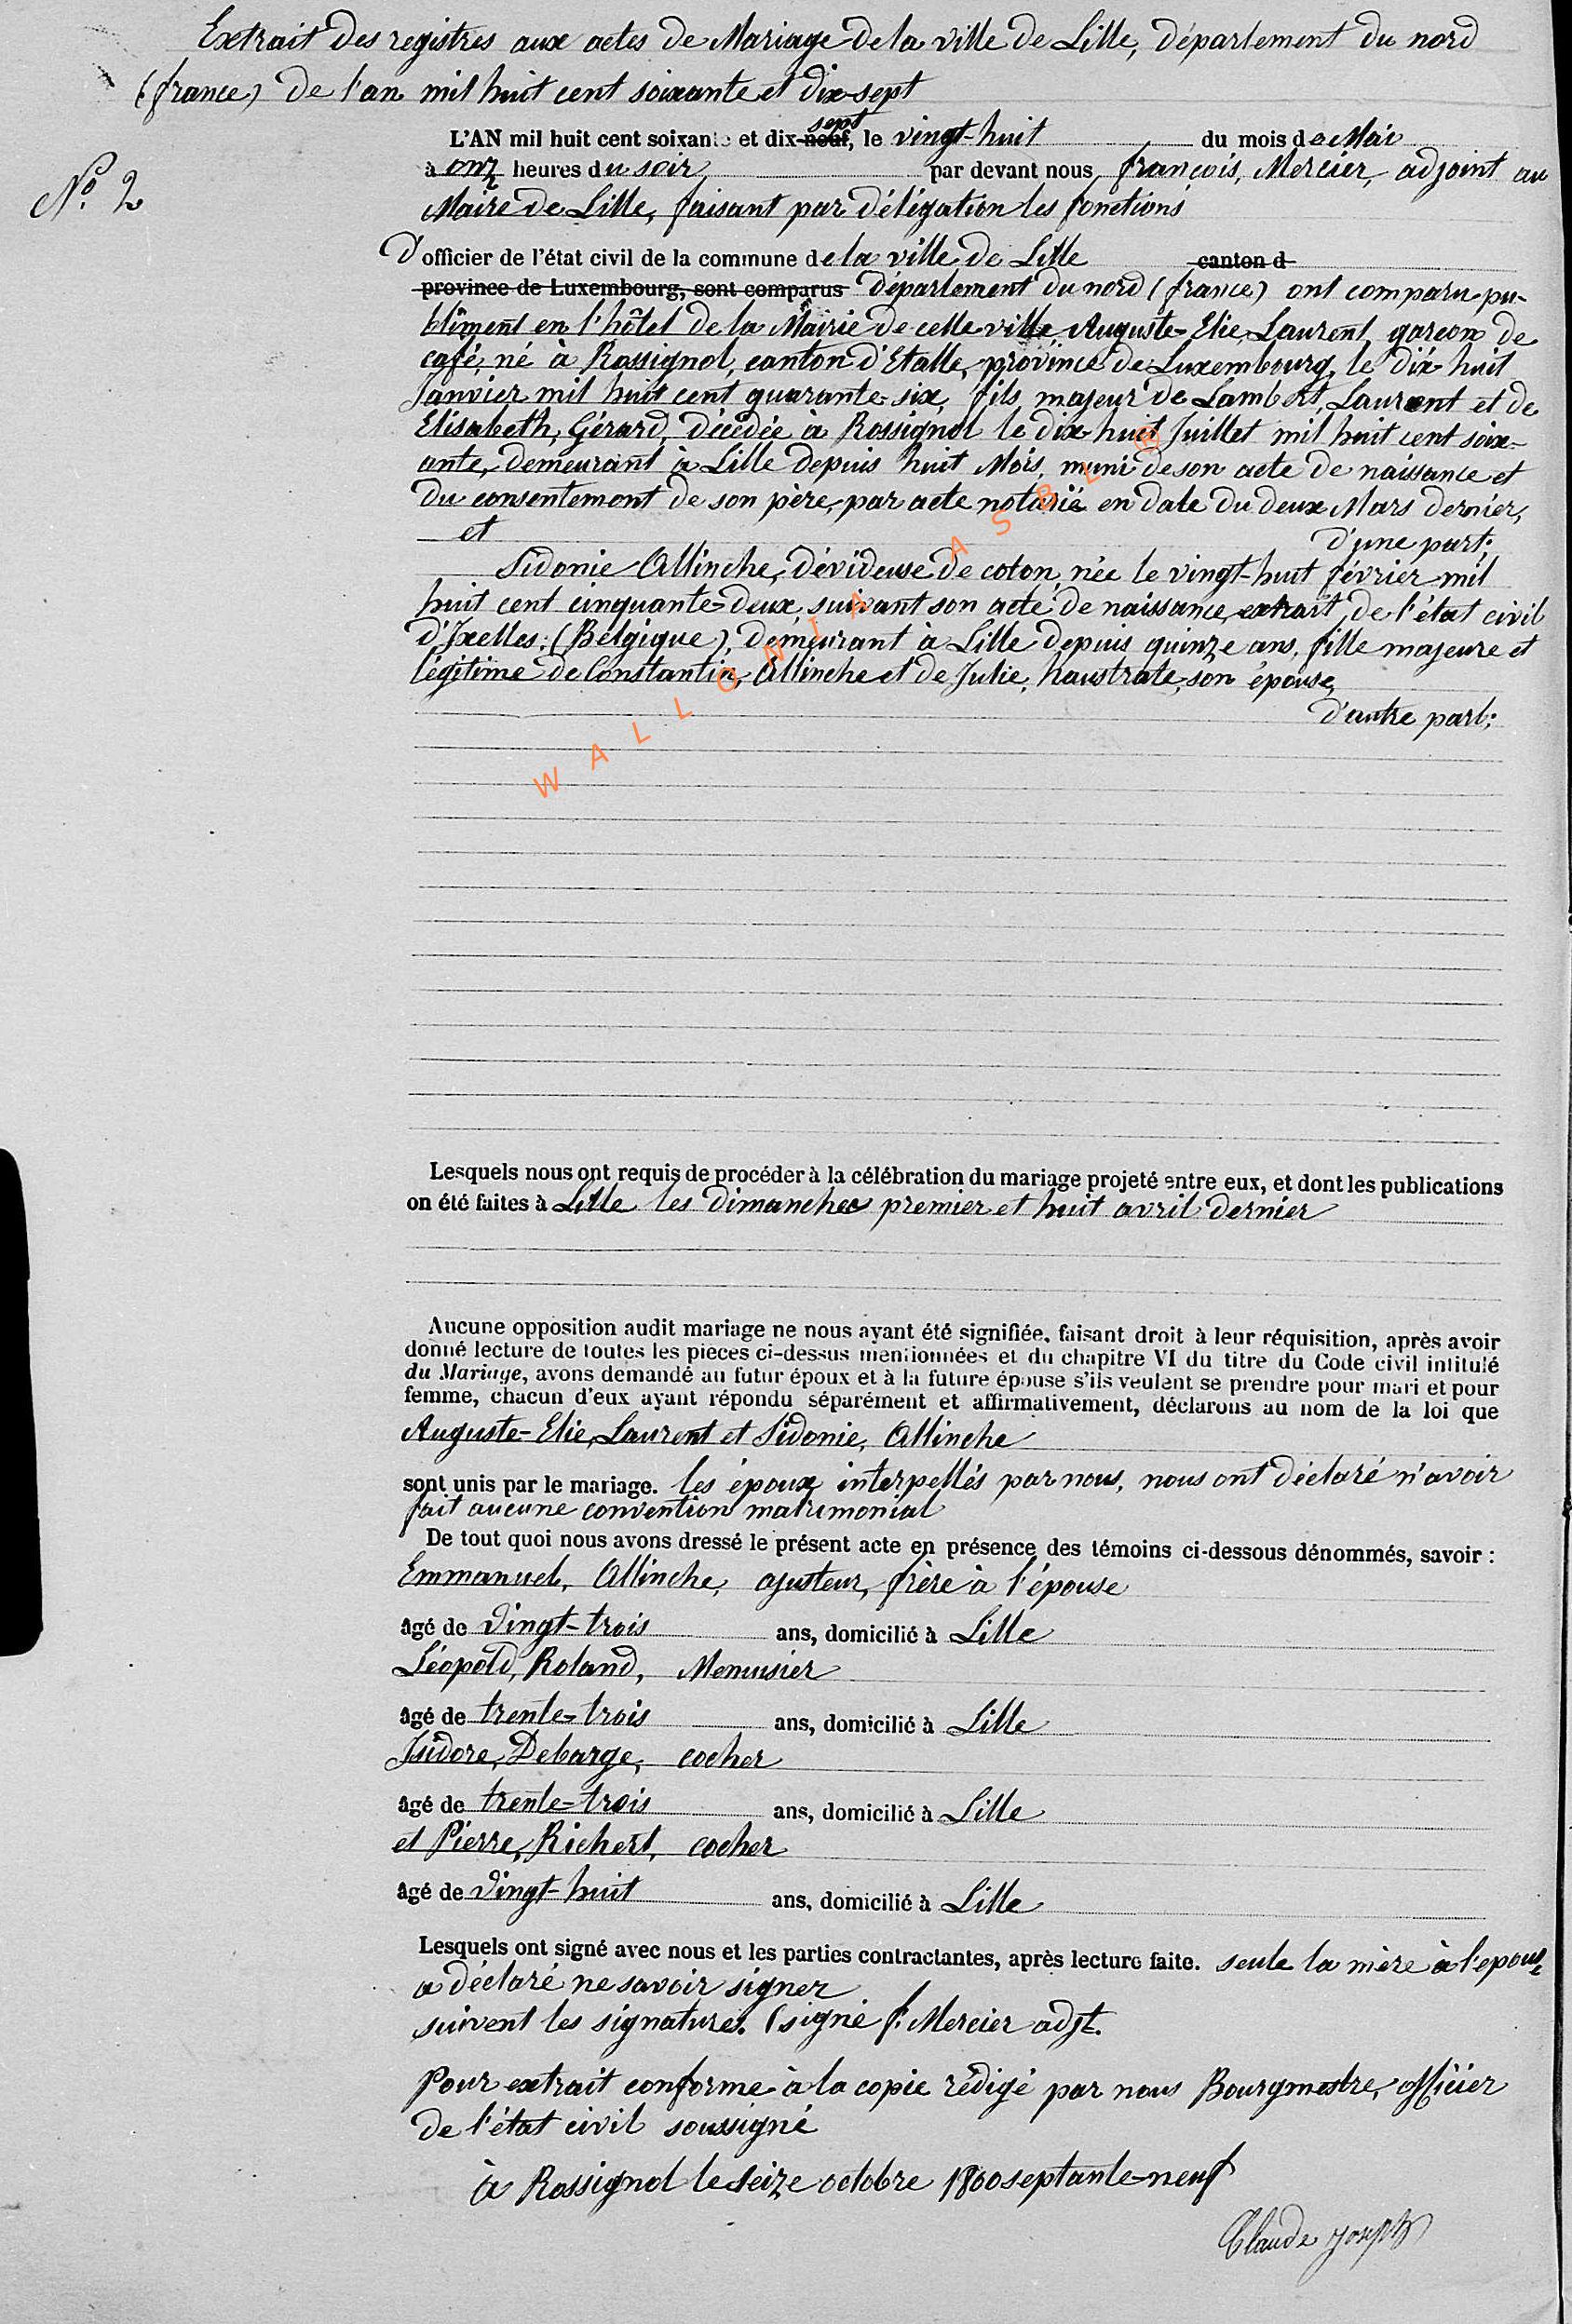 Extrait des registres aux actes de Mariage de la ville de Lille, département du nord
(france) de l'an mil huit cent soixante et dix-sept
sept
L'AN mil huit cent soixante et dix-neuf, le vingt-huit du mois de Mai
N° 2
à onz heures du soir par devant nous, françois, Mercier, adjoint au
Maire de Lille, faisant par délégation les fonctions
D'officier de l'état civil de la commune de la ville de Lille canton d
province de Luxembourg, sont comparus département du nord (france) ont comparu pu-
blîment en l'hôtel de la Mairie de celle ville, Auguste-Elie, Laurent, garcon de
café, né à Rossignol, canton d'Etalle, province de Luxembourg, le dix-huit
Janvier mil huit cent quarante-six, fils majeur de Lambert, Laurent et de
Elisabeth, Gérard, décédée à Rossignol le dix-huit Juillet mil huit cent soix-
ante, demeurant à Lille depuis huit Mois, muni de son acte de naissance et
du consentement de son père, par acte notarié en date du deux Mars dernier,
et d'une part;
Sidonie Allinche, dévideuse de coton, née le vingt-huit février mil
huit cent cinquante-deux, suivant son acte de naissance, extrait de l'état civil
d'Ixelles. (Belgique), demeurant à Lille depuis quinze ans, fille majeure et
légitime de Constantin, Allinche et de Julie, haustrate, son épouse,
d'autre part;
WALLONIA ASBL ®
Lesquels nous ont requis de procéder à la célébration du mariage projeté entre eux, et dont les publications
on été faites à Lille les dimanches premier et huit avril dernier
Aucune opposition audit mariage ne nous ayant été signifiée, faisant droit à leur réquisition, après avoir
donné lecture de toutes les pièces ci-dessus mentionnées et du chapitre VI du titre du Code civil intitulé
du Mariage, avons demandé au futur époux et à la future épouse s'ils veulent se prendre pour mari et pour
femme, chacun d'eux ayant répondu séparément et affirmativement, déclarons au nom de la loi que
Auguste-Elie, Laurent et Sidonie, Allinche
sont unis par le mariage. les époux interpellés par nous, nous ont déclaré n'avoir
fait aucune convention matrimonial
De tout quoi nous avons dressé le présent acte en présence des témoins ci-dessous dénommés, savoir :
Emmanuel, Allinche, ajusteur, frère à l'épouse
âgé de vingt-trois ans, domicilié à Lille
Léopold, Roland, Menusier
âgé de trente-trois ans, domicilié à Lille
Isidore, Debarge, cocher
âgé de trente-trois ans, domicilié à Lille
et Pierre, Richert, cocher
âgé de vingt-huit ans, domicilié à Lille
Lesquels ont signé avec nous et les parties contractantes, après lecture faite. seule la mère à l'epouse
a déclaré ne savoir signer
suivent les signatures. (signé f. Mercier adjt.
Pour extrait conforme à la copie rédigé par nous Bourgmestre, officier
de l'état civil soussigné
à Rossignol le seize octobre 1800 septante-neuf
Claude Joseph